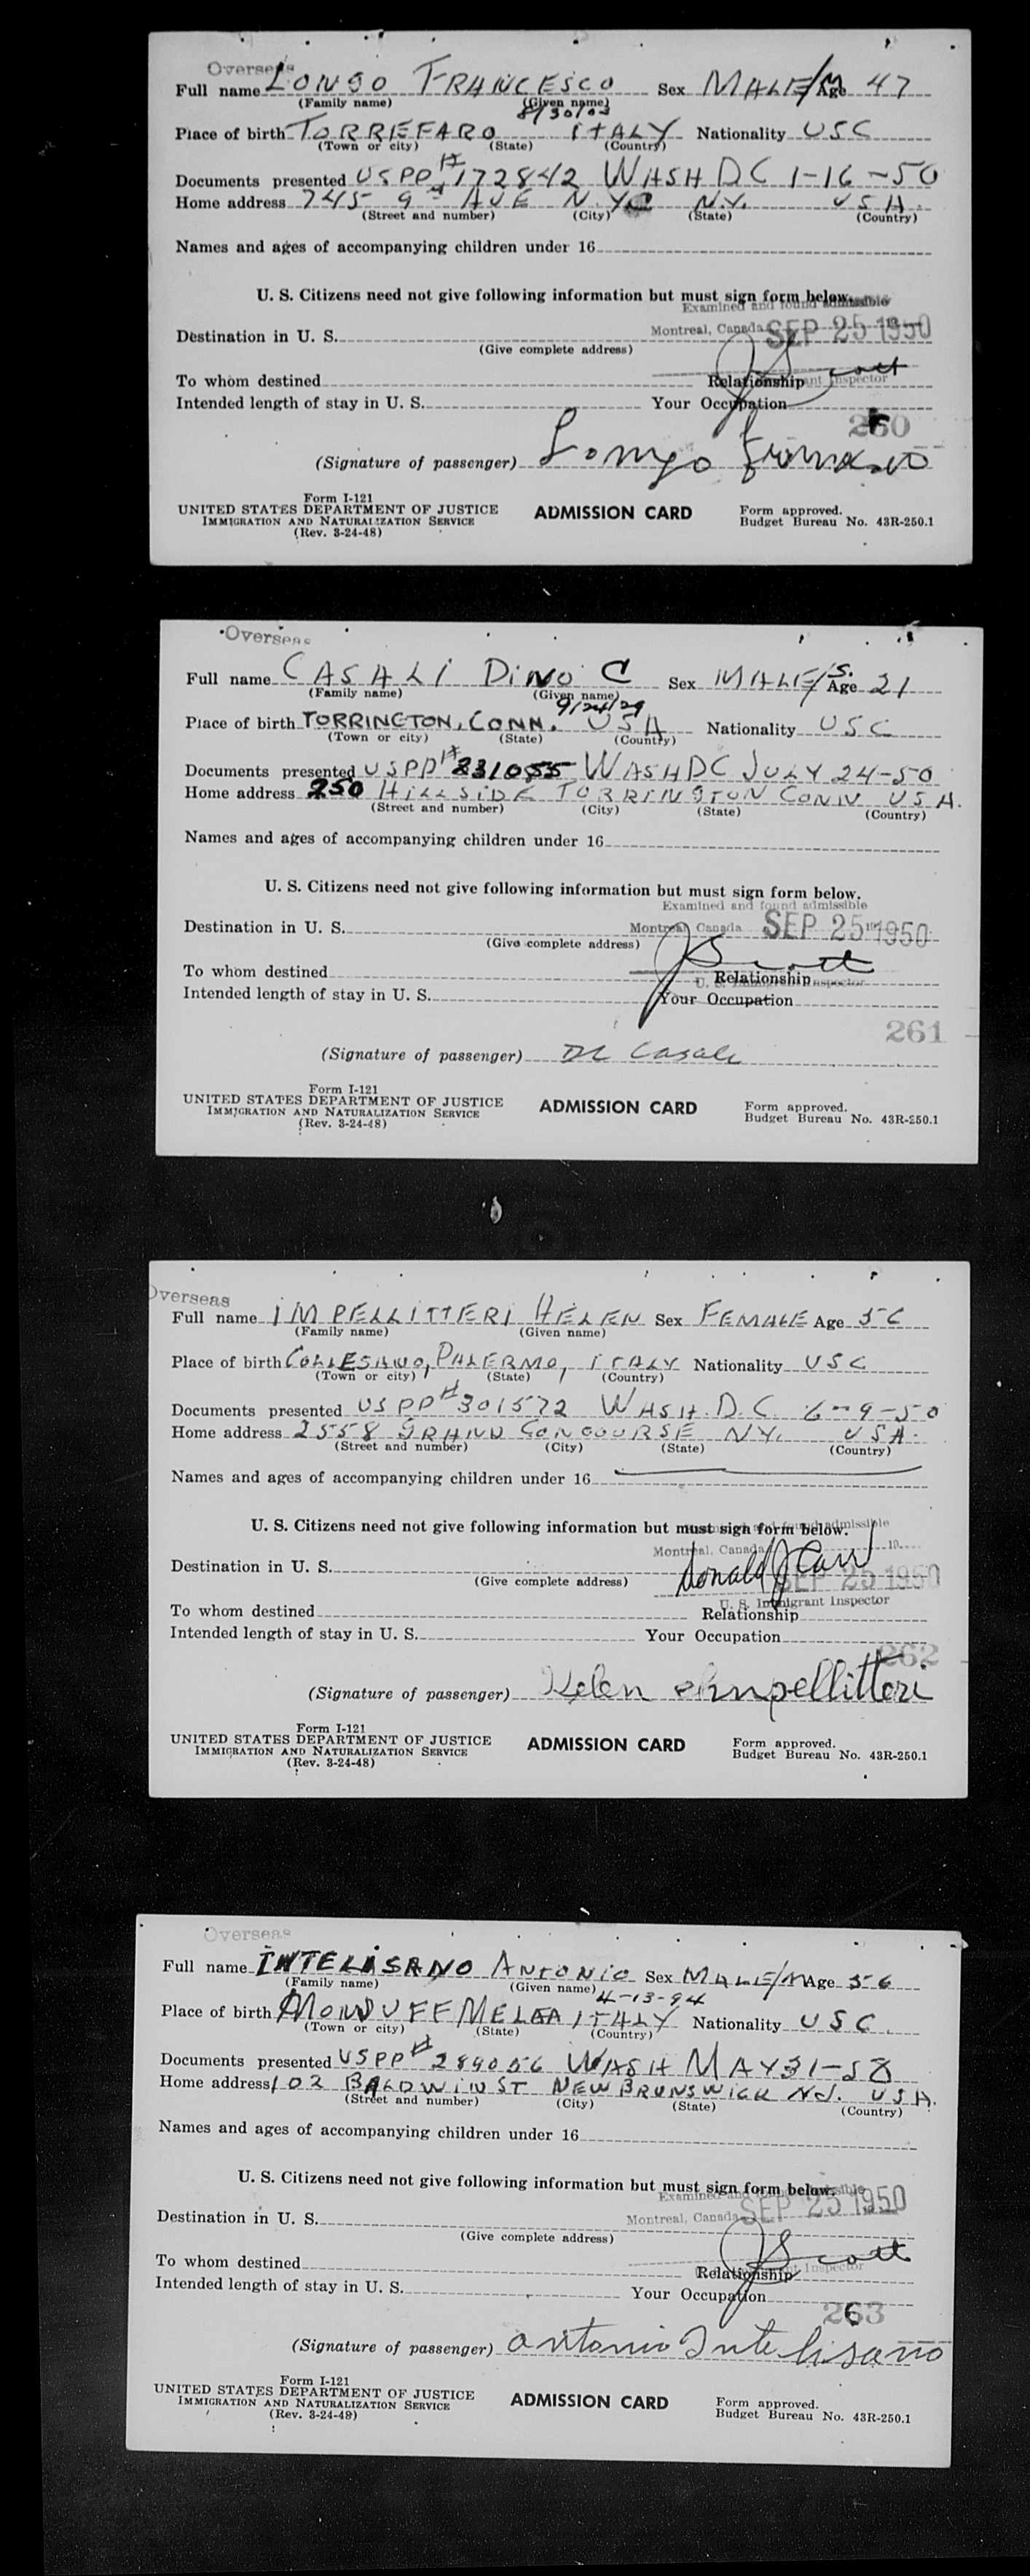 Overseas
Full name LONGO FRANCESCO Sex MALE/M Age 47
(Family name) (Given name)
8/30/03
Place of birth TORREFARO ITALY Nationality USC
(Town or city) (State) (Country)
Documents presented USPP# 172842 WASH DC 1-16-50
Home address 745 9th AVE N.Y.C N.Y. USA.
(Street and number) (City) (State) (Country)
Names and ages of accompanying children under 16
U. S. Citizens need not give following information but must sign form below.
Examined and found admissible
Destination in U. S. Montreal, Canada SEP 25 1950
(Give complete address)
J Scott
To whom destined Relationship Immigrant Inspector
Intended length of stay in U. S. Your Occupation
260
(Signature of passenger) Longo Francesco
Form I-121
UNITED STATES DEPARTMENT OF JUSTICE
IMMIGRATION AND NATURALIZATION SERVICE
(Rev. 3-24-48)
ADMISSION CARD
Form approved.
Budget Bureau No. 43R-250.1
Overseas
Full name CASALI DINO C Sex MALE/S. Age 21
(Family name) (Given name)
9/24/29
Place of birth TORRINGTON, CONN. USA Nationality USC
(Town or city) (State) (Country)
Documents presented USPP# 231055 WASH DC JULY 24-50
Home address 250 HILLSIDE TORRINGTON CONN USA.
(Street and number) (City) (State) (Country)
Names and ages of accompanying children under 16
U. S. Citizens need not give following information but must sign form below.
Examined and found admissible
Destination in U. S. Montreal, Canada SEP 25 1950
(Give complete address)
J Scott
To whom destined Relationship
U. S. Immigrant Inspector
Intended length of stay in U. S. Your Occupation
261
(Signature of passenger) DC Casali
Form I-121
UNITED STATES DEPARTMENT OF JUSTICE
IMMIGRATION AND NATURALIZATION SERVICE
(Rev. 3-24-48)
ADMISSION CARD
Form approved.
Budget Bureau No. 43R-250.1
Overseas
Full name IMPELLITTERI HELEN Sex FEMALE Age 56
(Family name) (Given name)
Place of birth COLLESANO, PALERMO, ITALY Nationality USC
(Town or city) (State) (Country)
Documents presented USPP# 301572 WASH. D.C 6-9-50
Home address 2558 GRAND CONCOURSE NY. USA.
(Street and number) (City) (State) (Country)
Names and ages of accompanying children under 16
U. S. Citizens need not give following information but must sign form below.
Examined and found admissible
Montreal, Canada 19
Destination in U. S. Donald J Carr
(Give complete address) SEP 25 1950
U. S. Immigrant Inspector
To whom destined Relationship
Intended length of stay in U. S. Your Occupation
262
(Signature of passenger) Helen Impellitteri
Form I-121
UNITED STATES DEPARTMENT OF JUSTICE
IMMIGRATION AND NATURALIZATION SERVICE
(Rev. 3-24-48)
ADMISSION CARD
Form approved.
Budget Bureau No. 43R-250.1
Overseas
Full name INTELISANO ANTONIO Sex MALE/M Age 56
(Family name) (Given name)
4-13-94
Place of birth ITALY Nationality USC.
(Town or city) (State) (Country)
Documents presented USPP# 289056 WASH MAY 31-50
Home address 102 BALDWIN ST NEW BRUNSWICK NJ. USA.
(Street and number) (City) (State) (Country)
Names and ages of accompanying children under 16
U. S. Citizens need not give following information but must sign form below.
Examined and found admissible
Destination in U. S. Montreal, Canada SEP 25 1950
(Give complete address)
J Scott
To whom destined Relationship Inspector
Intended length of stay in U. S. Your Occupation
263
(Signature of passenger) Antonio Intelisano
Form I-121
UNITED STATES DEPARTMENT OF JUSTICE
IMMIGRATION AND NATURALIZATION SERVICE
(Rev. 3-24-48)
ADMISSION CARD
Form approved.
Budget Bureau No. 43R-250.1